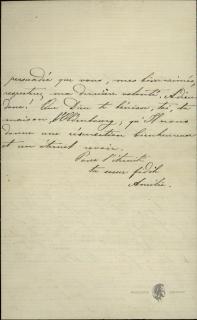 persuadée que vous, mes bien-aimés,
respecterez ma dernière volonté. Adieu
donc! Que Dieu te bénisse, toi, ta
maison d'Oldenbourg, qu'Il nous
donne une résurrection bienheureuse
et un éternel revoir.
Pour l'éternité
ta sœur fidèle
Amélie.